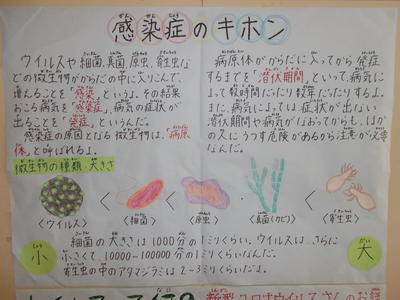 感染症のキホン
ウイルスや細菌、真菌、原虫、寄生虫な
どの微生物がからだの中に入りこんで、
増えることを「感染」というよ。その結果
おこる病気を「感染症」、病気の症状が
出ることを「発症」というんだ。
感染症の原因となる微生物は、「病原
体」と呼ばれるよ。
病原体がからだに入ってから発症
するまでを「潜伏期間」といって、病気に
よって数時間だったり数年だったりするよ。
また、病気によっては症状が出ない
潜伏期間や病気がなおってからも、ほか
の人にうつす危険があるから注意が必要
なんだ。
微生物の種類と大きさ
<ウイルス>
<
<細菌>
<
<原虫>
<
<真菌(カビ)>
<
<寄生虫>
小
大
細菌の大きさは1000分の1ミリくらい。ウイルスは、さらに
小さくて、10000~100000分の1ミリくらいなんだ。
寄生虫の中のアタマジラミは2~3ミリくらいだよ。
新型コロナウイルス